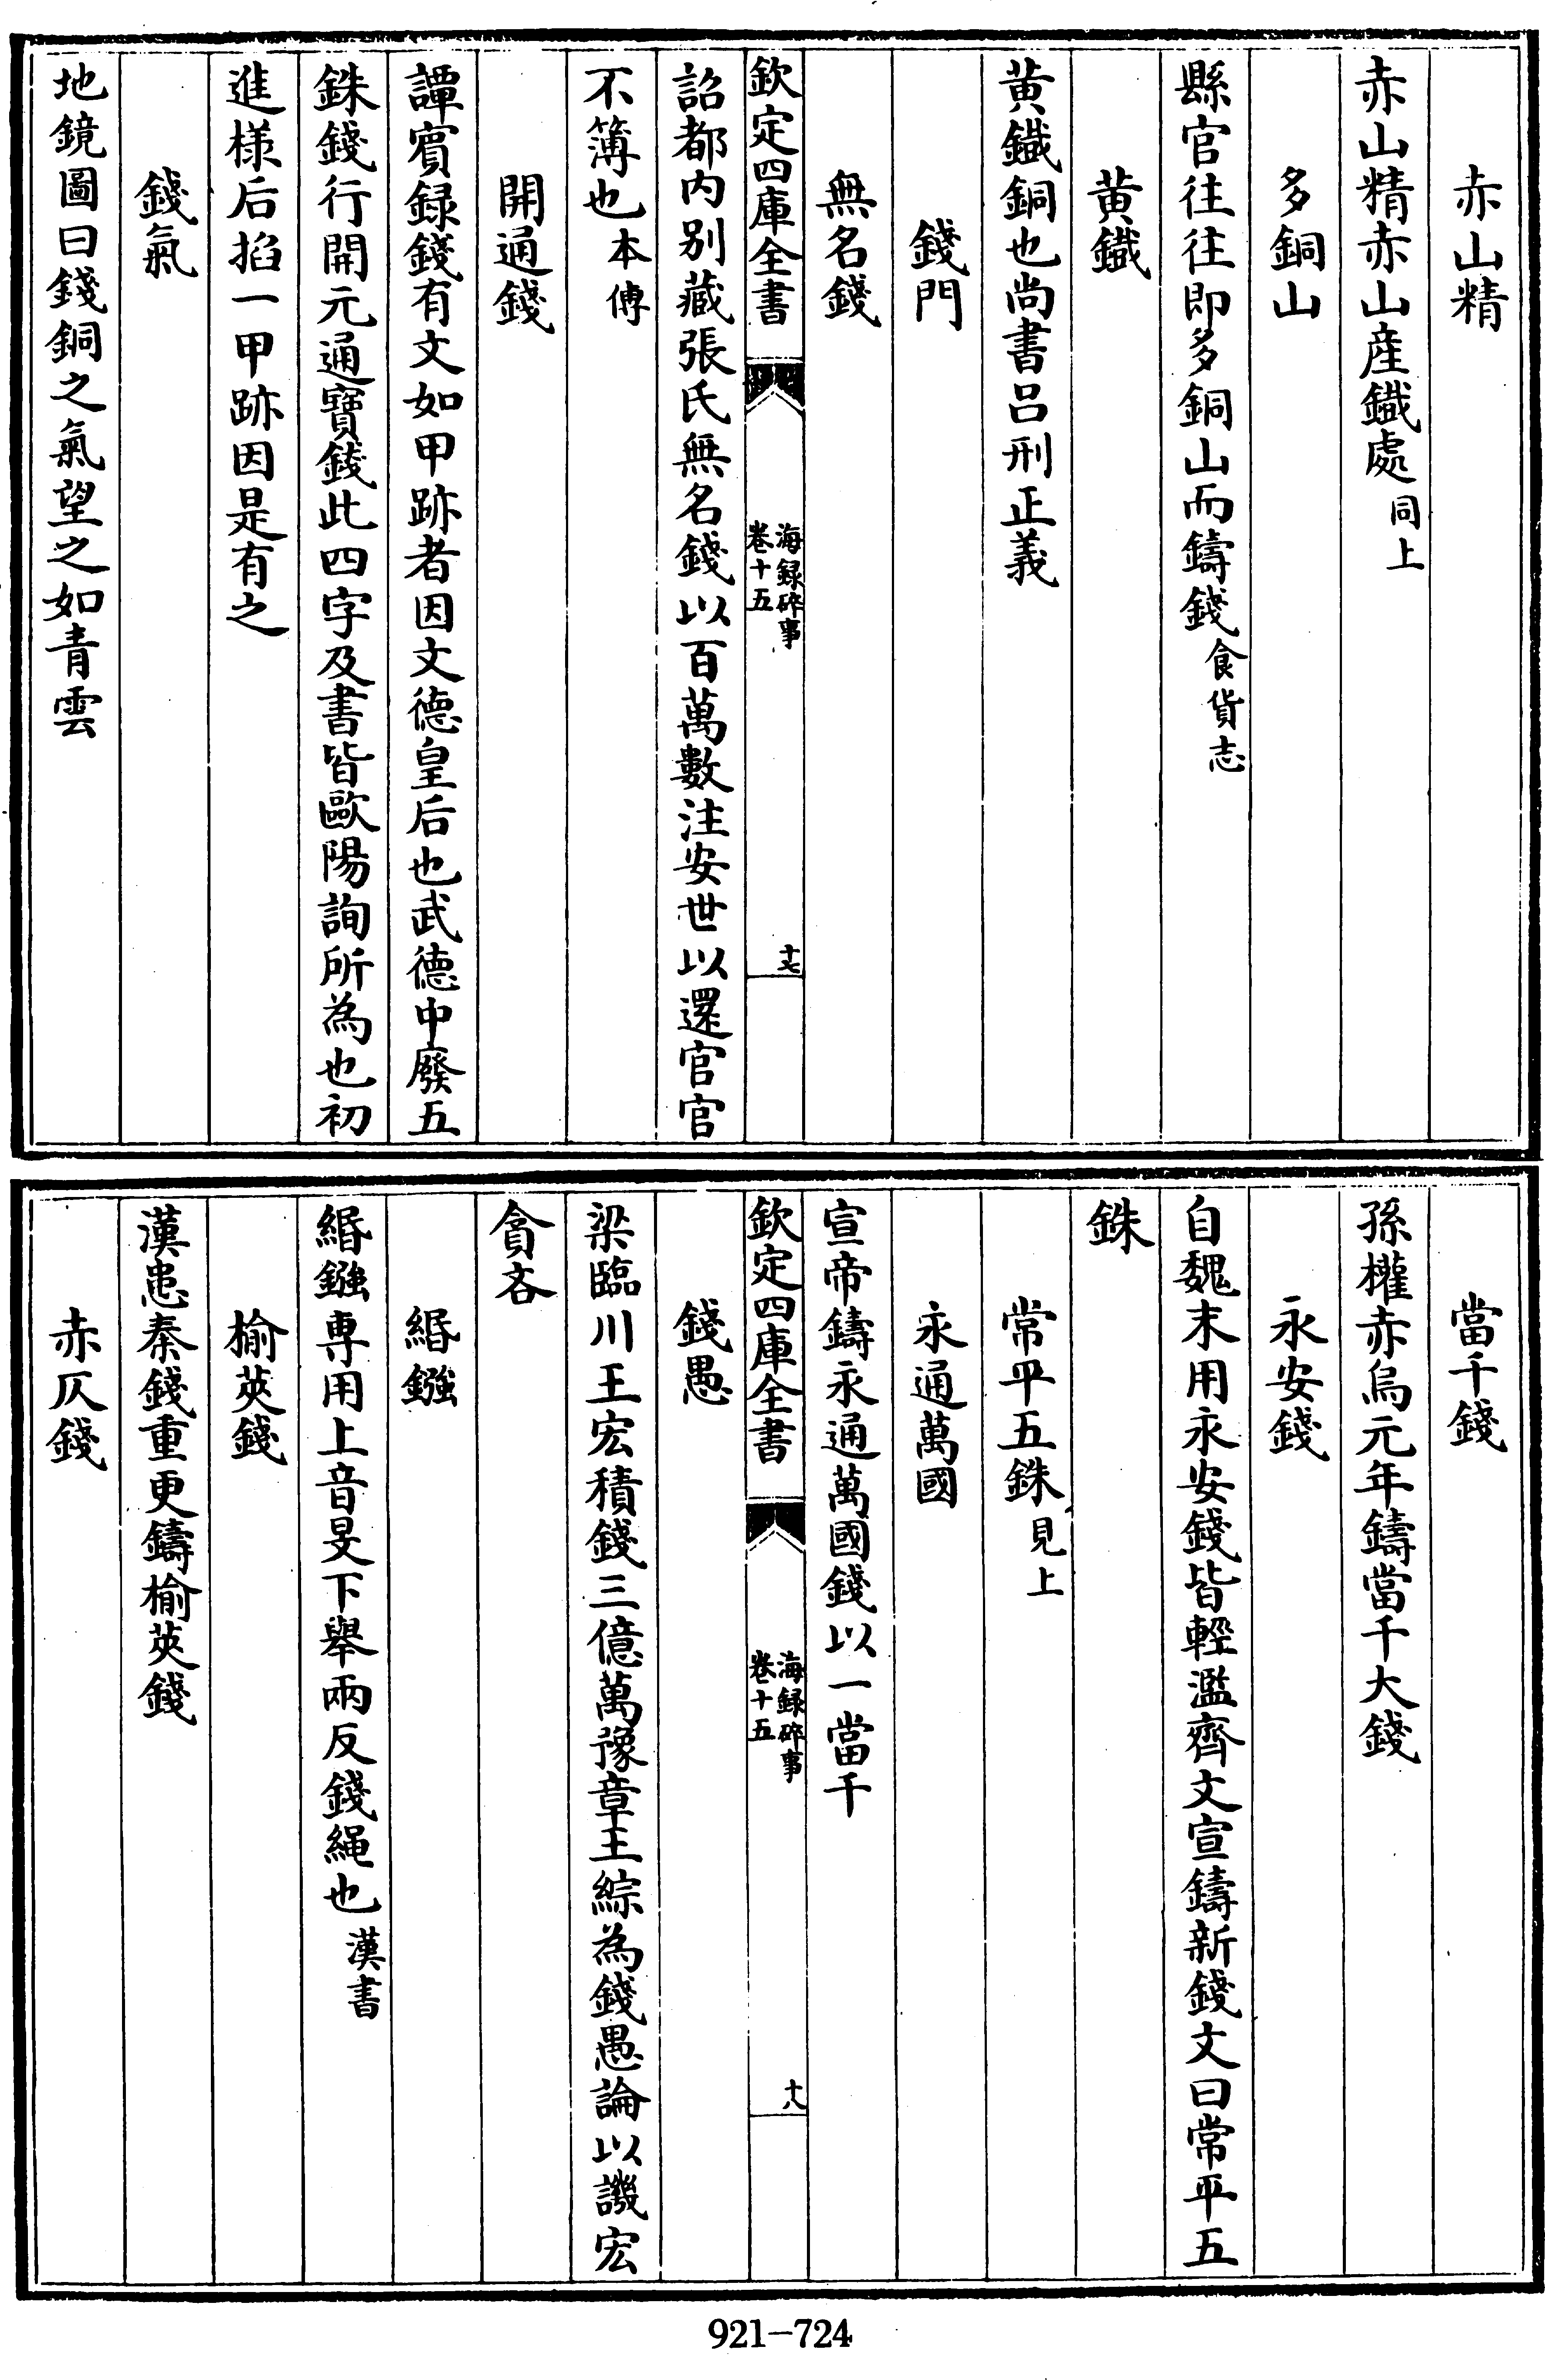 赤山精
赤山精赤山産鐵處同上
多銅山
縣官往往即多銅山而鑄錢食貨志
黄鐵
黄鐵銅也尚書吕刑正義
錢門
無名錢
欽定四庫全書
海録碎事
卷十五
十七
詔都内别藏張氏無名錢以百萬數注安世以還官官
不簿也本傳
開通錢
譚賓録錢有文如甲跡者因文德皇后也武德中廢五
銖錢行開元通寶錢此四字及書皆歐陽詢所為也初
進樣后掐一甲跡因是有之
錢氣
地鏡圖曰錢銅之氣望之如青雲
當千錢
孫權赤烏元年鑄當千大錢
永安錢
自魏末用永安錢皆輕濫齊文宣鑄新錢文曰常平五
銖
常平五銖見上
永通萬國
宣帝鑄永通萬國錢以一當千
欽定四庫全書
海録碎事
卷十五
十八
錢愚
梁臨川王宏積錢三億萬豫章王綜為錢愚論以譏宏
貪吝
緡鏹
緡鏹専用上音旻下舉兩反錢繩也漢書
榆莢錢
漢患秦錢重更鑄榆莢錢
赤仄錢
921-724